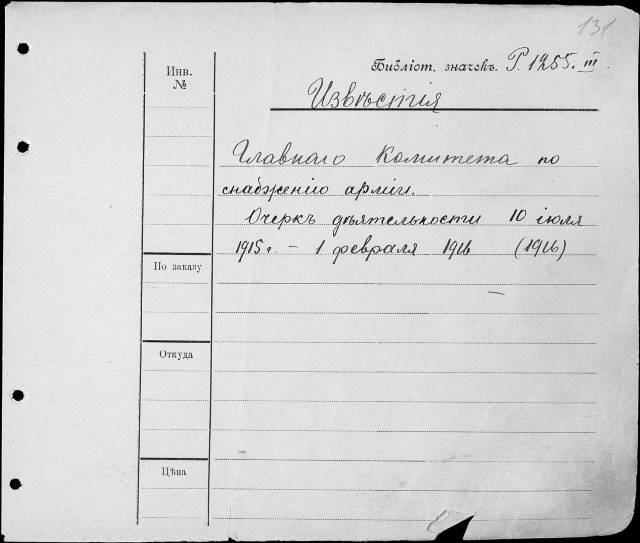 131
Инв.
№
Библіот. значекъ. Р. 1255. III.
Извѣстія
Главнаго Комитета по
снабженію арміи.
Очеркъ дѣятельности 10 іюля
1915 г. – 1 февраля 1916 (1916)
По заказу
Откуда
Цѣна